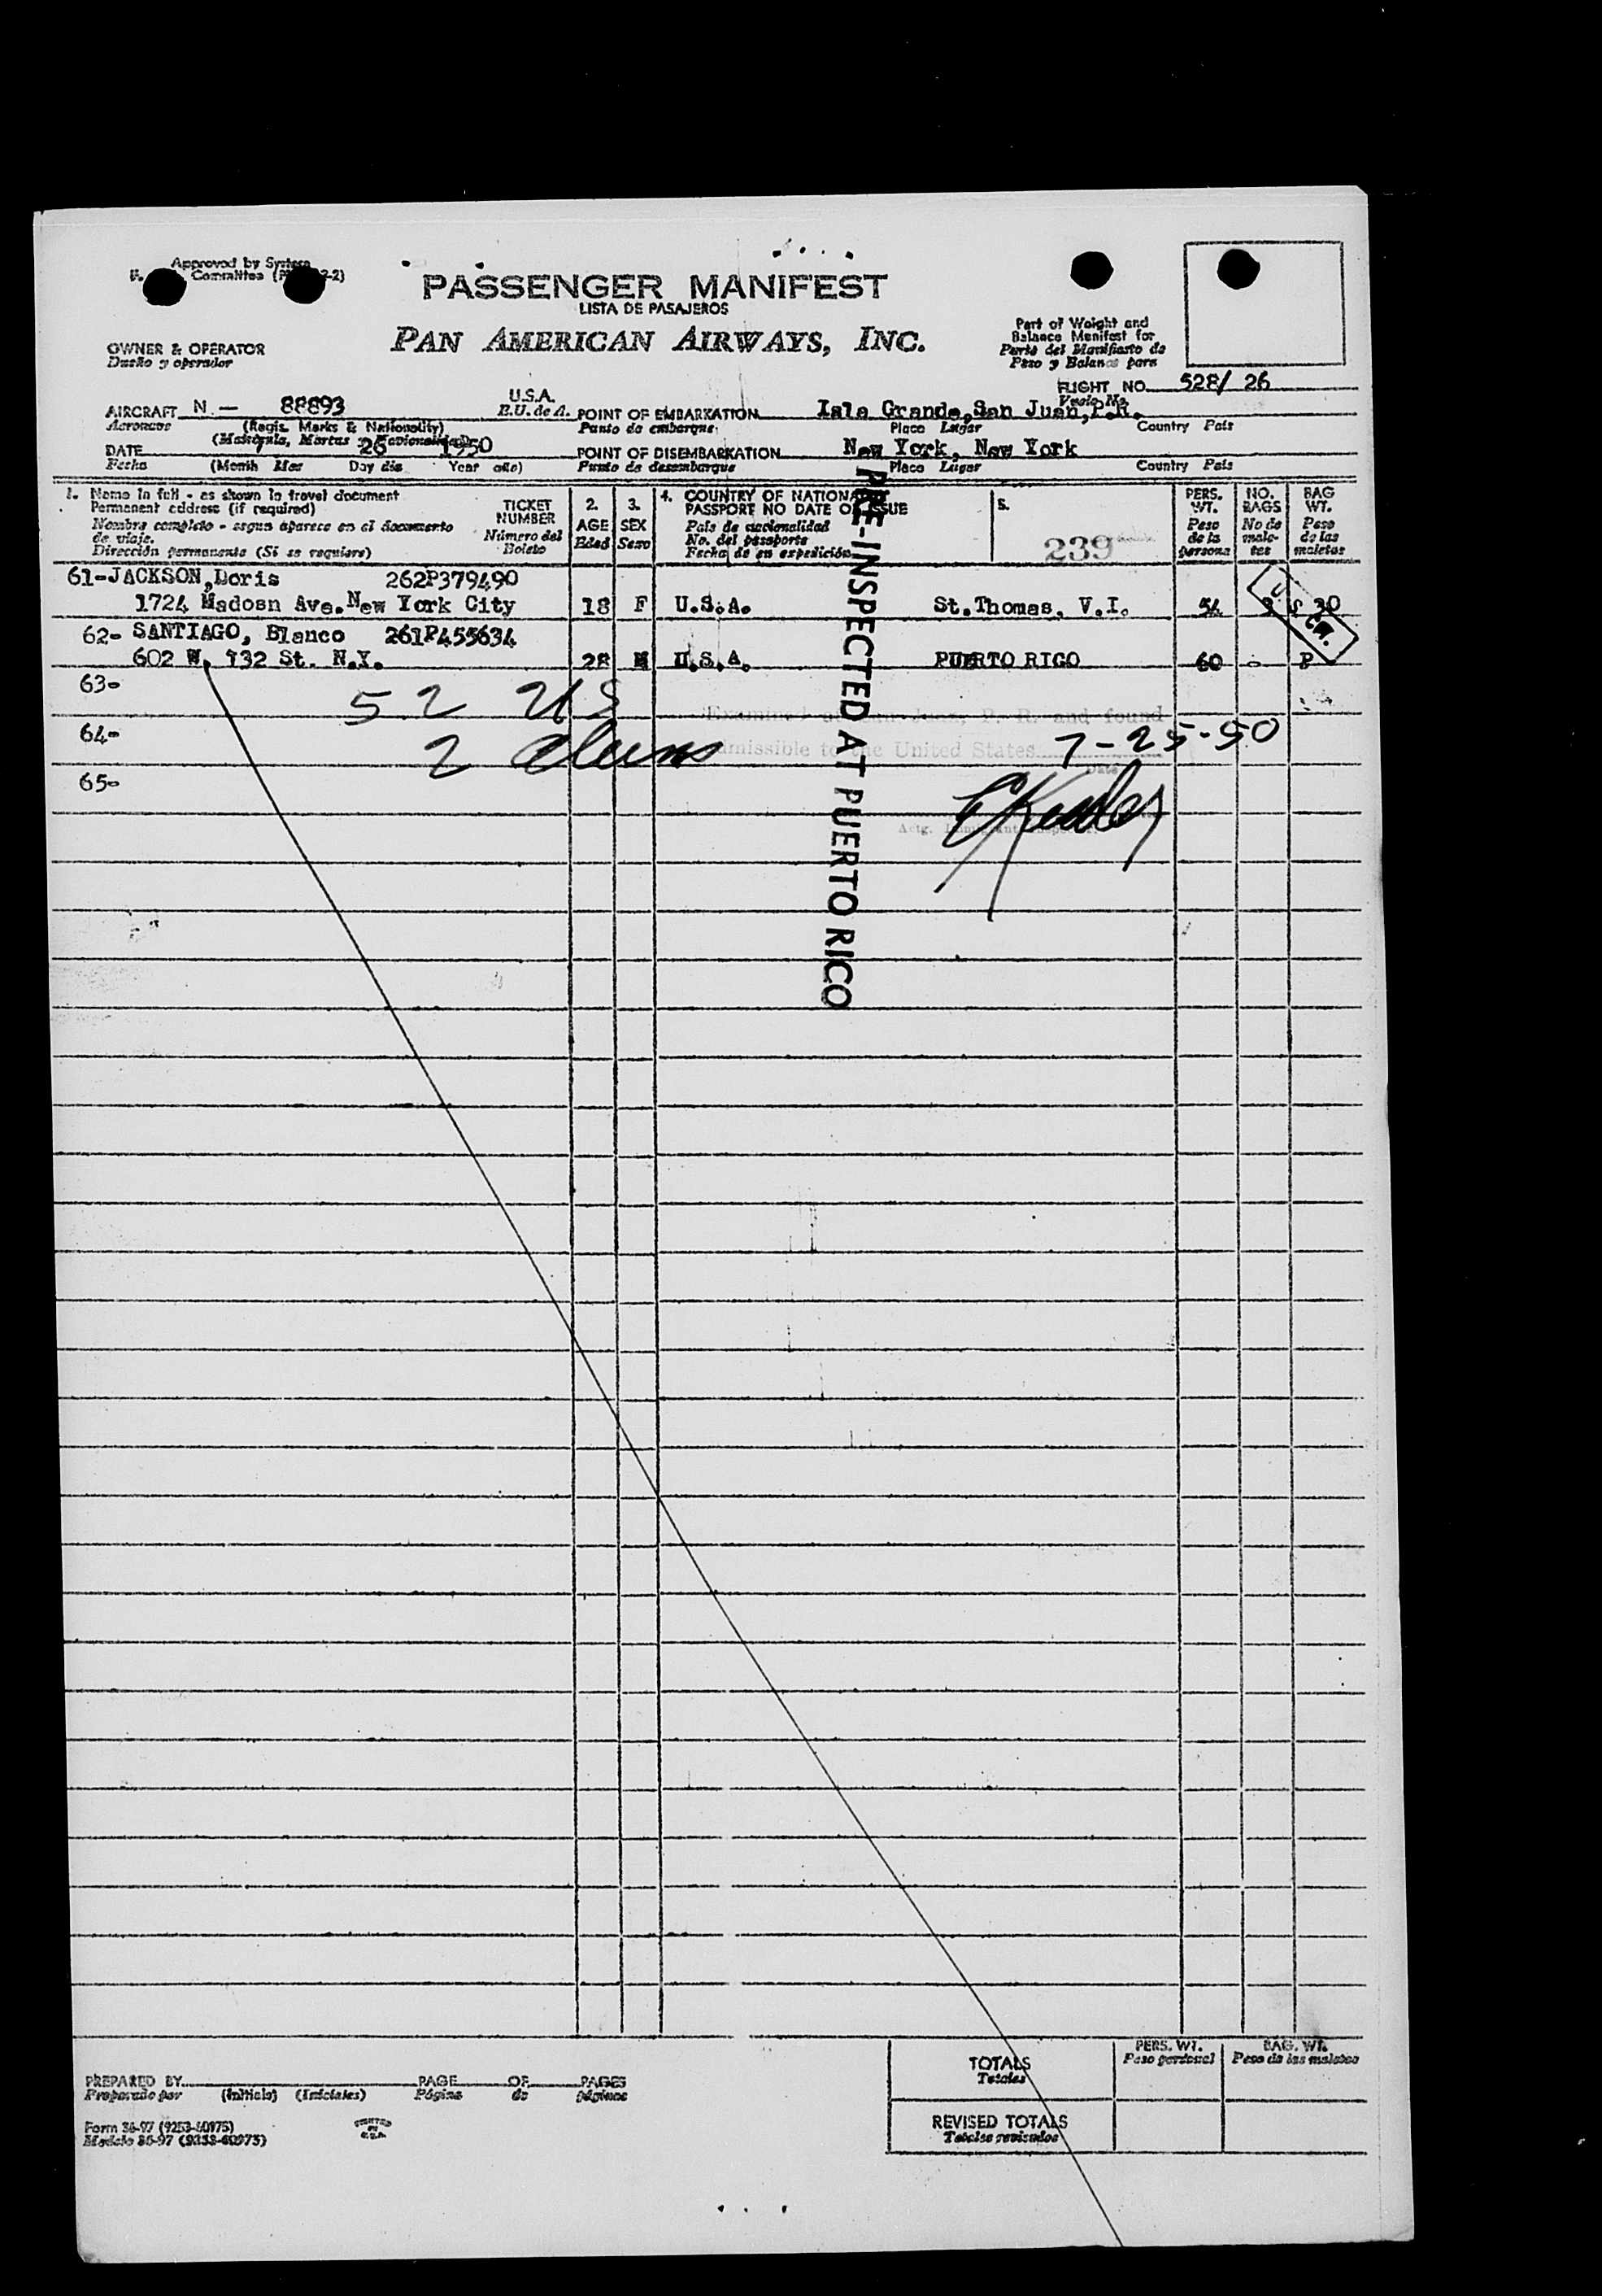 Approved by System
Committee
PASSENGER MANIFEST
LISTA DE PASAJEROS
PAN AMERICAN AIRWAYS, INC.
OWNER & OPERATOR
Dueño y operador
Part of Weight and
Balance Manifest for
Parte del Manifiesto de
Peso y Balance para
FLIGHT NO. 528/ 26
Vuelo No.
AIRCRAFT N — 88893
Aeronave
(Regis. Marks & Nationality)
U.S.A.
E.U. de A.
POINT OF EMBARKATION Isla Grande, San Juan, P.R.
Punto de embarque
Place Lugar
Country País
DATE 7 26 1950
Fecha (Month Mes Day día Year año)
POINT OF DISEMBARKATION New York, New York
Punto de desembarque
Place Lugar
Country País
1. Name in full - as shown in travel document
Permanent address (if required)
Nombre completo - segun aparece en el documento
de viaje.
Dirección permanente (Si se requiere)
TICKET
NUMBER
Número del
Boleto
2.
AGE
Edad
3.
SEX
Sexo
4. COUNTRY OF NATIONALITY
PASSPORT NO DATE OF ISSUE
País de nacionalidad
No. del pasaporte
Fecha de su expedición
5.
239
PERS.
WT.
Peso
de la
persona
NO.
BAGS
No de
male-
tas
BAG
WT.
Peso
de las
maletas
61-JACKSON,Doris 262P379490
1724 Madosn Ave.New York City 18 F U.S.A. St.Thomas, V.I. 54 30
U. S.
62- SANTIAGO, Blanco 261P455634
602 W. 132 St. N.Y. 28 M U.S.A. PUERTO RICO 60
63-
52 US
Examined at San Juan, P. R. and found
64-
2 Aliens
admissible to the United States 7-25-50
Date
65-
Actg. Immigrant Inspector
PRE-INSPECTED AT PUERTO RICO
TOTALS
Totales
PERS. WT.
Peso personal
BAG. WT.
Peso de las maletas
REVISED TOTALS
Totales revisados
PREPARED BY PAGE OF PAGES
Preparado por (Initials) (Iniciales) Página de páginas
Form 36-97 (9253-60975)
Modelo 36-97 (9253-60975)
PRINTED
IN
U.S.A.